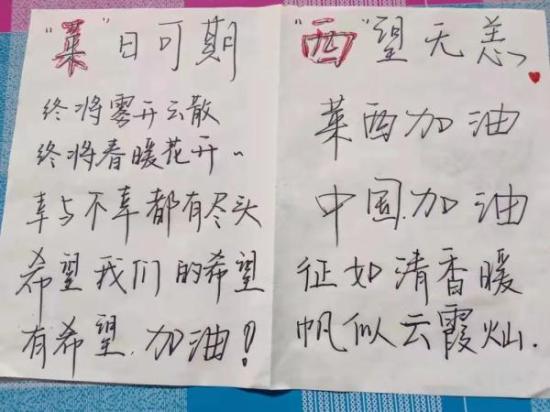 "莱"日可期
终将雾开云散
终将春暖花开~
幸与不幸都有尽头
希望我们的希望
有希望.加油!
"西"望无恙、
莱西加油
中国.加油
征如清香暖
帆似云霞灿.